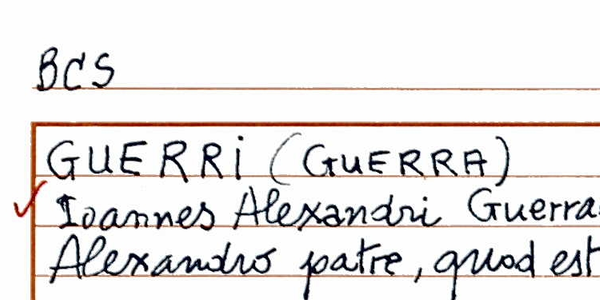 BCS
GUERRi (GUERRA)
Ioannes Alexandri Guerra
Alexandro patre, quod est